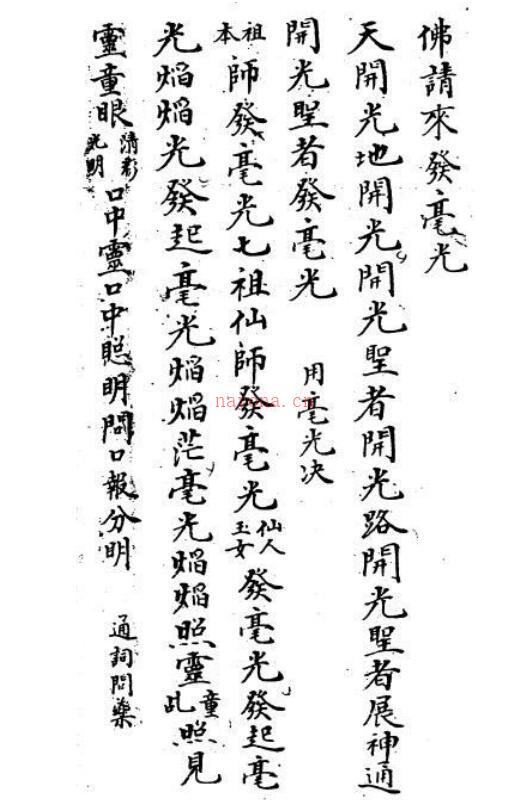 佛請來發毫光
天開光地開光開光聖者開光路開光聖者展神通
開光聖者發毫光 用毫光决
祖本師發毫光七祖仙師發毫光仙人玉女發毫光發起毫
光焰焰光發起毫光焰焰茫毫光焰焰照靈童乩照見
靈童眼清彩光明口中靈口中聰明問口報分明 通詞問藥
nayona.cn